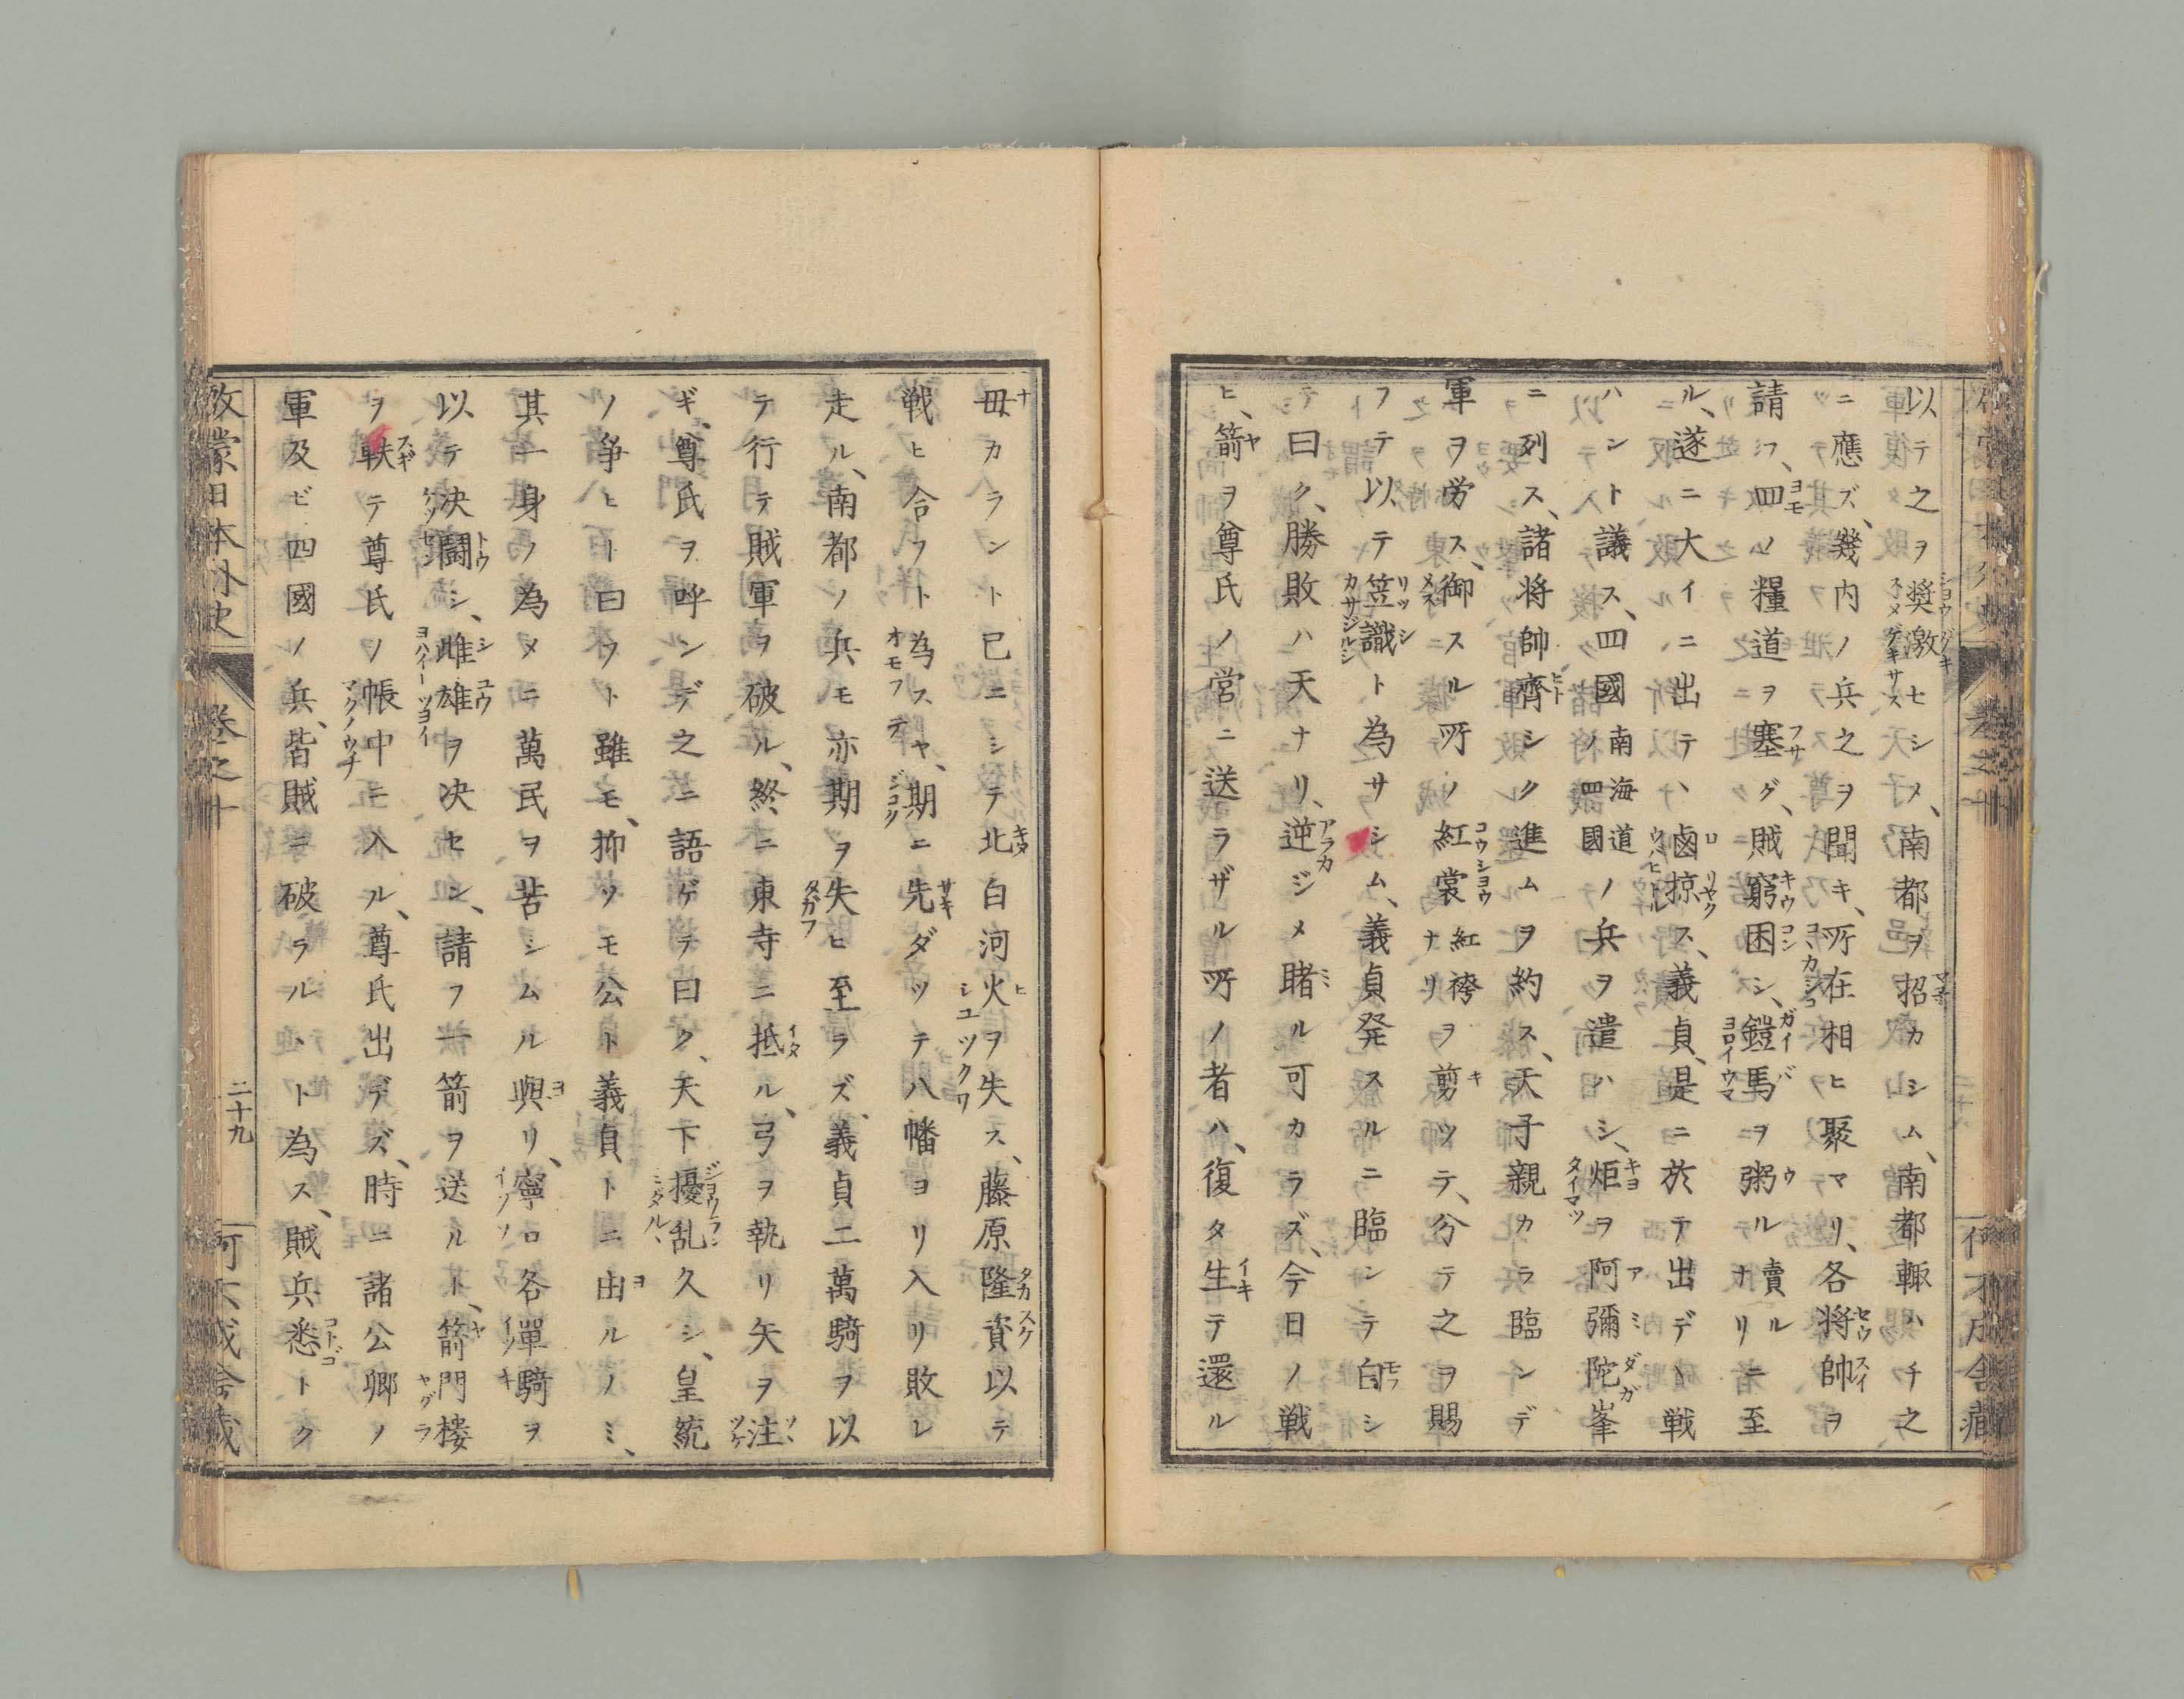 以テ之ヲ奨激セシメ、南都ヲ招カシム、南都輙ハチ之
ニ應ズ、幾内ノ兵之ヲ聞キ、所在相ヒ聚マリ、各将帥ヲ
請フ、四ノ糧道ヲ塞グ、賊窮困シ、鎧馬ヲ粥ル賣ルニ至
ル、遂ニ大イニ出テ、鹵掠ス、義貞、是ニ於テ出デヽ戦
ハント議ス、四國南海道ノ四國ノ兵ヲ遣ハシ、炬ヲ阿彌陀峯
ニ列ス、諸将帥齊シク進ムヲ約ス、天子親カラ臨ンデ
軍ヲ労ス、御スル所ノ紅裳紅袴ナリヲ剪ツテ、分テ之ヲ賜
フテ以テ笠識ト為サシム、義貞発スルニ臨ンテ白シ
テ曰ク、勝敗ハ天ナリ、逆ジメ睹ル可カラズ、今日ノ戦
ヒ、箭ヲ尊氏ノ営ニ送ラザル所ノ者ハ、復タ生テ還ル
毋カラント已ニシテ北白河火ヲ失ス、藤原隆資以テ
戦ヒ合フト為スヤ、期ニ先ダツテ八幡ヨリ入リ敗レ
走ル、南都ノ兵モ亦期ヲ失ヒ至ラズ、義貞二萬騎ヲ以
テ行テ賊軍ヲ破ル、終ニ東寺ニ抵ル、弓ヲ執リ矢ヲ注
ギ、尊氏ヲ呼ンデ之ニ語ゲテ曰ク、天下擾乱久シ、皇統
ノ争ヒト曰フト雖モ、抑ツモ公ト義貞トニ由ルノミ、
其一身ノ為メニ萬民ヲ苦シムル與リ、寧ロ各單騎ヲ
以テ决闘シ、雌雄ヲ决セン、請フ一箭ヲ送ルト、箭門楼
ヲ軼テ尊氏ノ帳中ニ入ル、尊氏出デズ、時ニ諸公卿ノ
軍及ビ四國ノ兵、皆賊ニ破ラルヽト為ス、賊兵悉トク
啓蒙日本外史 巻之十 二十九